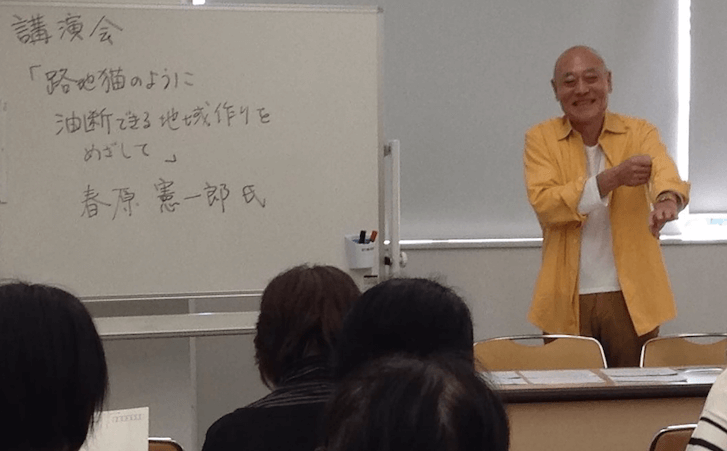 講演会
「路地猫のように
油断できる地域作りを
めざして」
春原憲一郎氏